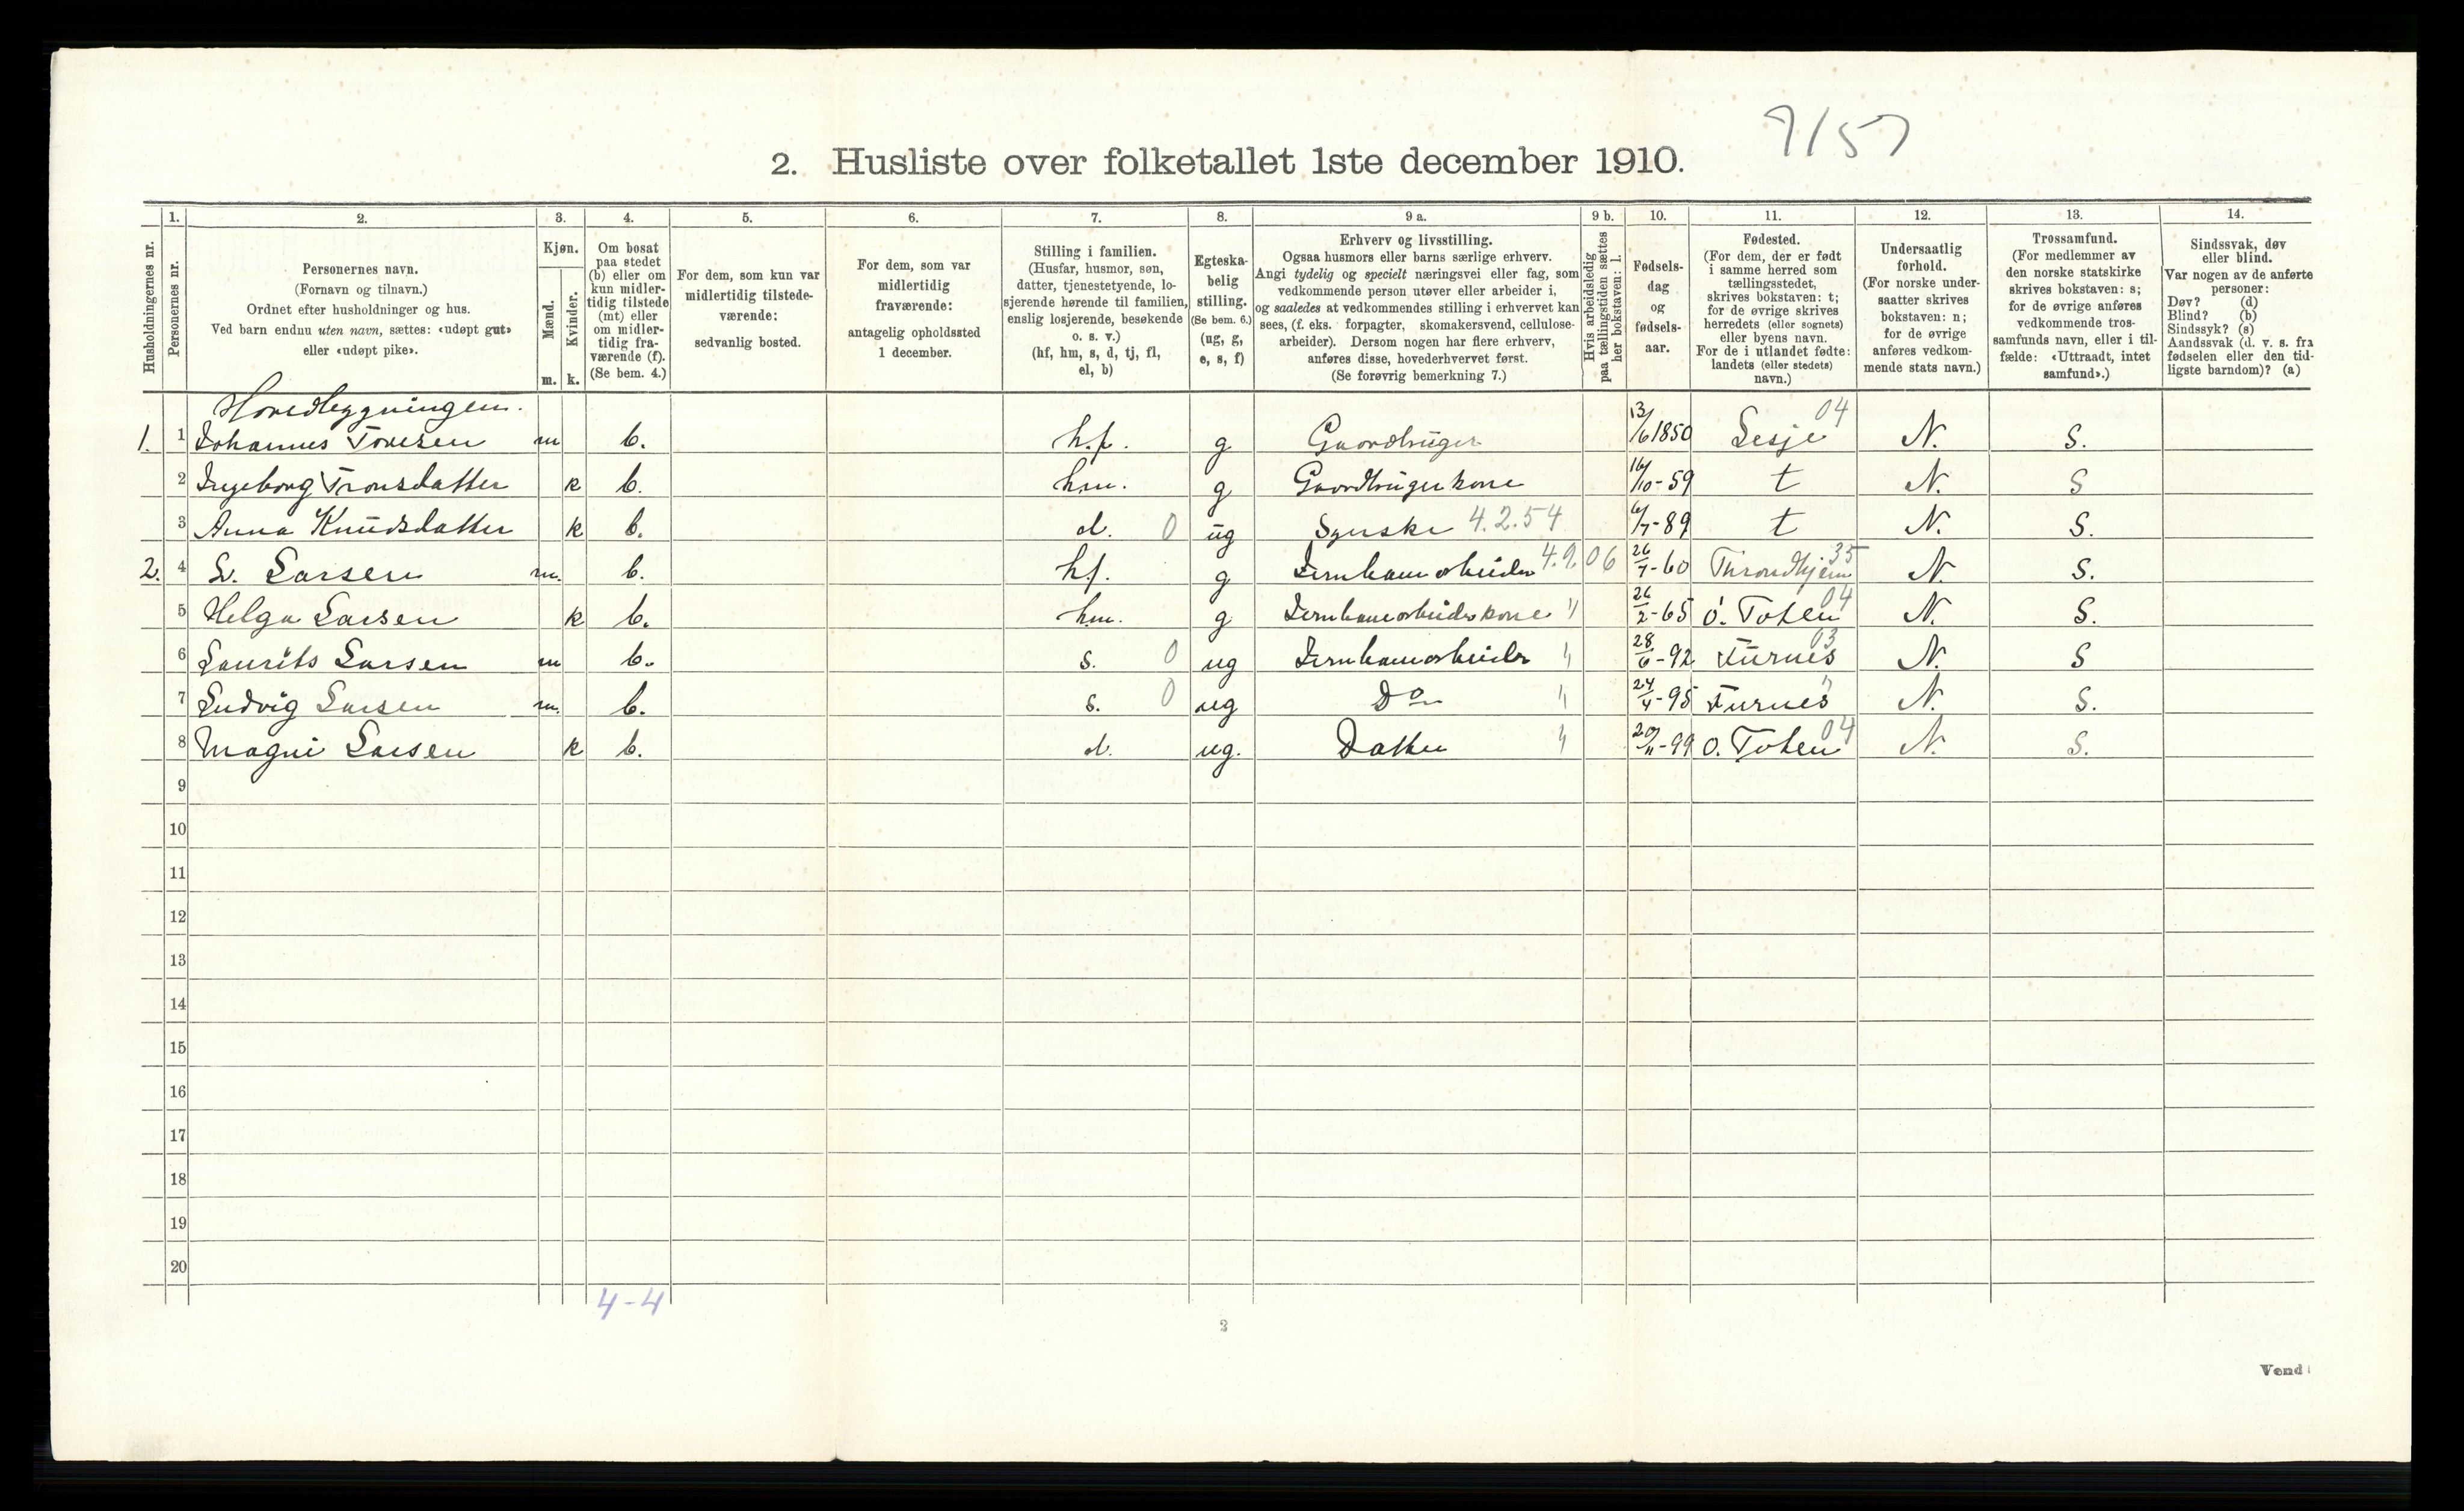 9/57
2. Husliste over folketallet 1ste december 1910.
1. 2. 3. 4. 5. 6. 7. 8. 9 a. 9 b. 10. 11. 12. 13. 14.
Husholdningernes nr.
Personernes nr.
Personernes navn.
(Fornavn og tilnavn.)
Ordnet efter husholdninger og hus.
Ved barn endnu uten navn, sættes: «udøpt gut»
eller «udøpt pike».
Kjøn.
Mænd.
Kvinder.
m. k.
Om bosat
paa stedet
(b) eller om
kun midler-
tidig tilstede
(mt) eller
om midler-
tidig fra-
værende (f).
(Se bem. 4.)
For dem, som kun var
midlertidig tilstede-
værende:
sedvanlig bosted.
For dem, som var
midlertidig
fraværende:
antagelig opholdssted
1 december.
Stilling i familien.
(Husfar, husmor, søn,
datter, tjenestetyende, lo-
sjerende hørende til familien,
enslig losjerende, besøkende
o. s. v.)
(hf, hm, s, d, tj, fl,
el, b)
Egteska-
belig
stilling.
(Se bem. 6.)
(ug, g,
e, s, f)
Erhverv og livsstilling.
Ogsaa husmors eller barns særlige erhverv.
Angi tydelig og specielt næringsvei eller fag, som
vedkommende person utøver eller arbeider i,
og saaledes at vedkommendes stilling i erhvervet kan
sees, (f. eks. forpagter, skomakersvend, cellulose-
arbeider). Dersom nogen har flere erhverv,
anføres disse, hovederhvervet først.
(Se forøvrig bemerkning 7.)
Hvis arbeidsledig
paa tællingstiden sættes
her bokstaven: l.
Fødsels-
dag
og
fødsels-
aar.
Fødested.
(For dem, der er født
i samme herred som
tællingsstedet,
skrives bokstaven: t;
for de øvrige skrives
herredets (eller sognets)
eller byens navn.
For de i utlandet fødte:
landets (eller stedets)
navn.)
Undersaatlig
forhold.
(For norske under-
saatter skrives
bokstaven: n;
for de øvrige
anføres vedkom-
mende stats navn.)
Trossamfund.
(For medlemmer av
den norske statskirke
skrives bokstaven: s;
for de øvrige anføres
vedkommende tros-
samfunds navn, eller i til-
fælde: «Uttraadt, intet
samfund».)
Sindssvak, døv
eller blind.
Var nogen av de anførte
personer:
Døv? (d)
Blind? (b)
Sindssyk? (s)
Aandssvak (d. v. s. fra
fødselen eller den tid-
ligste barndom)? (a)
Hovedbygningen.
1. 1 Johannes Toresen m b. h.f. g Gaardbruger 13/6 1850 Lesje 04 N. S.
2 Ingeborg Tronsdatter k b. hm. g Gaardbrugerkone 16/10-59 t N. S
3 Anna Knudsdatter k b. d. 0 ug Syerske 4.2.54 6/7-89 t N. S.
2. 4 L. Larsen m. b. h.f. g Jernbanearbeider 4.9.06 26/7-60 Throndhjem 35 N. S.
5 Helga Larsen k b. hm. g Jernbanearbeiderkone " 26/2-65 Ö. Toten 04 N. S.
6 Laurits Larsen m b. s. 0 ug Jernbanearbeider " 28/6-92 Furnes 03 N. S
7 Ludvig Larsen m. b. s. 0 ug Do " 24/4-95 Furnes " N. S.
8 Magni Larsen k b. d. ug. Datter " 20/11-99 Ö. Toten 04 N. S.
9
10
11
12
13
14
15
16
17
18
19
20
4-4
3
Vend!